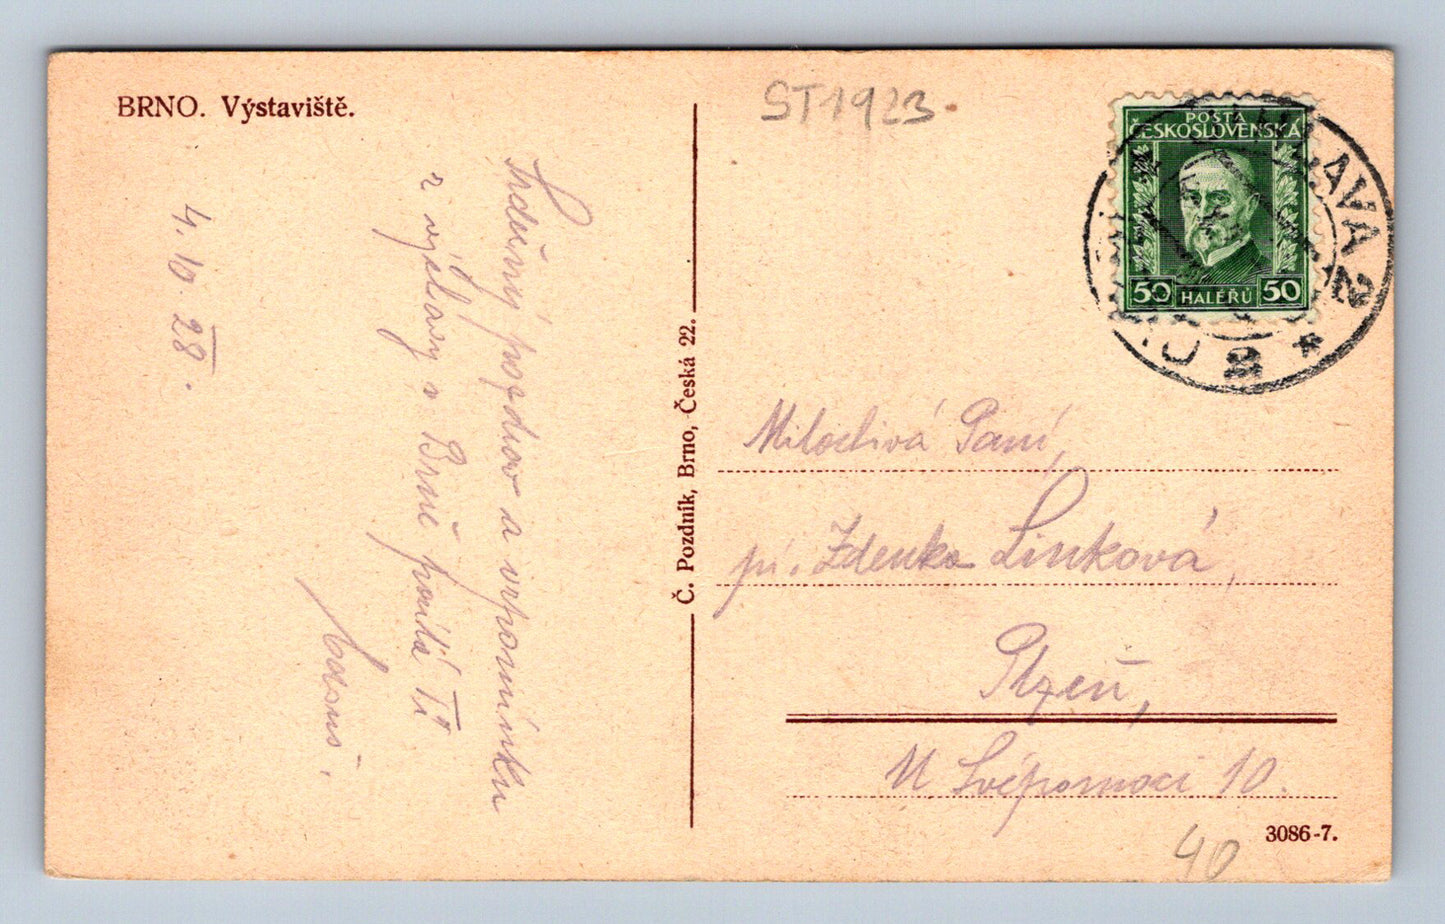 BRNO. Výstaviště.
ST1923.
POŠTA
ČESKOSLOVENSKÁ
50 HALÉŘŮ 50
JIHLAVA 2
4. 10. 28.
Srdečný pozdrav a vzpomínku
z výstavy v Brně posílá Ti
Č. Pozdník, Brno, Česká 22.
Milostivá Paní,
pí. Zdenka Linková,
Plzeň,
U Svépomoci 10.
3086-7.
40